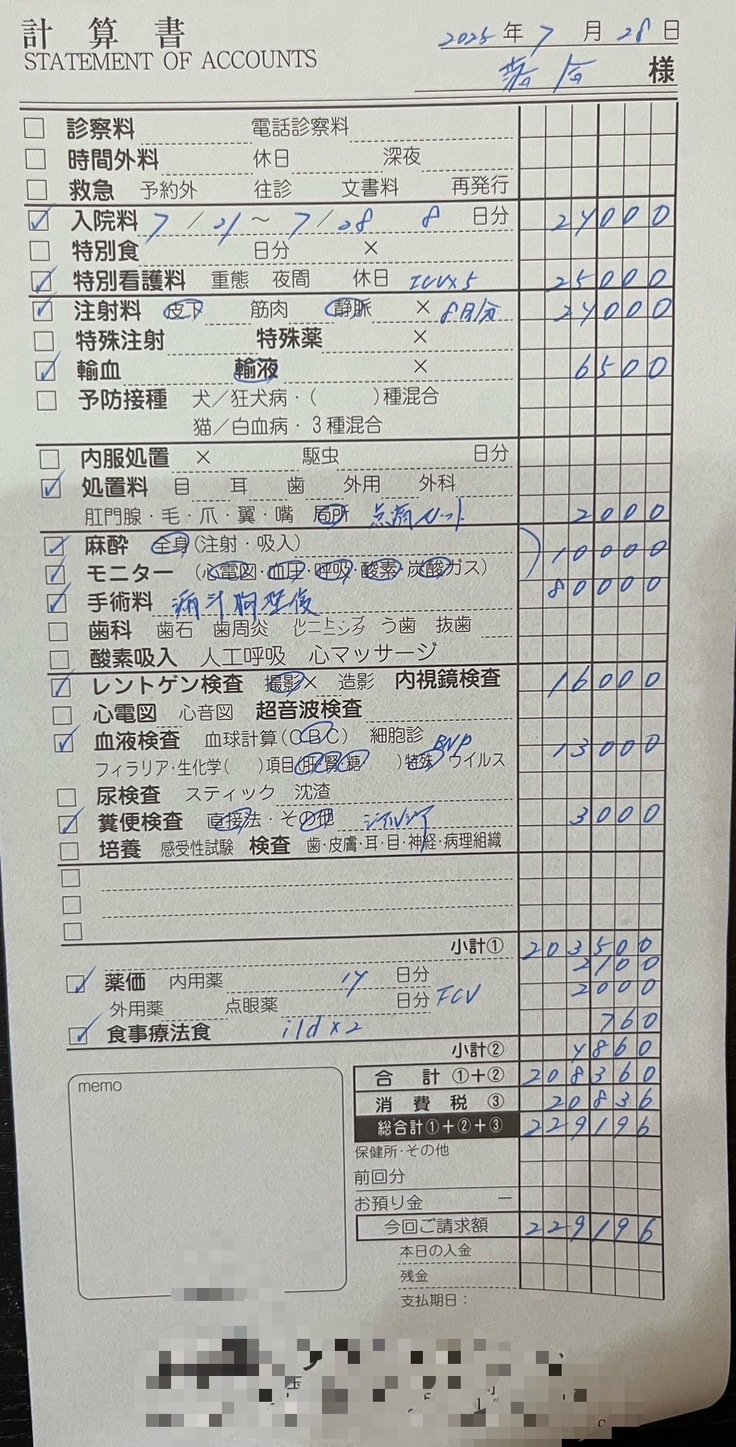 計算書
STATEMENT OF ACCOUNTS
2025年 7月 28日
様
診察料 電話診察料
時間外料 休日 深夜
救急 予約外 往診 文書料 再発行
✓ 入院料 7/21～7/28 8日分 24000
特別食 日分 ×
✓ 特別看護料 重態 夜間 休日 ICU×5 25000
✓ 注射料 皮下 筋肉 静脈 × 8日分 24000
特殊注射 特殊薬 ×
✓ 輸血 輸液 × 6500
予防接種 犬／狂犬病・( )種混合
猫／白血病・3種混合
内服処置 × 駆虫 日分
✓ 処置料 目 耳 歯 外用 外科
肛門腺・毛・爪・翼・嘴 局所 点滴ルート 2000
✓ 麻酔 全身(注射・吸入)
✓ モニター (心電図・血圧・呼吸・酸素・炭酸ガス) 10000
✓ 手術料 80000
歯科 歯石 歯周炎 ルートプレーニング う歯 抜歯
酸素吸入 人工呼吸 心マッサージ
✓ レントゲン検査 撮影× 造影 内視鏡検査 16000
心電図 心音図 超音波検査
✓ 血液検査 血球計算(CBC) 細胞診 BNP
フィラリア・生化学( )項目(肝・腎・糖 )特殊 ウイルス 13000
尿検査 スティック 沈渣
✓ 糞便検査 直接法・その他 ジアルジア 3000
培養 感受性試験 検査 歯・皮膚・耳・目・神経・病理組織
小計① 203500
✓ 薬価 内用薬 14日分 2100
外用薬 点眼薬 日分 FCV 2000
✓ 食事療法食 i/d×2 760
小計② 4860
memo
合計 ①+② 208360
消費税 ③ 20836
総合計①+②+③ 229196
保健所・その他
前回分
お預り金 －
今回ご請求額 229196
本日の入金
残金
支払期日：